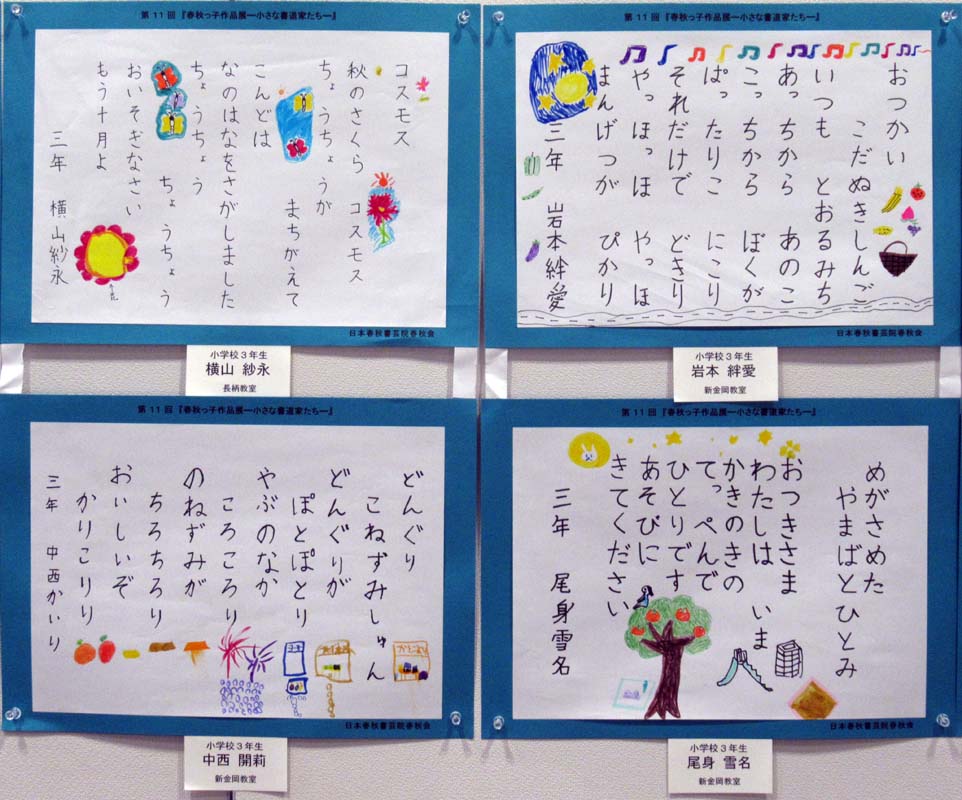 第11回『春秋っ子作品展―小さな書道家たち―』
コスモス
秋のさくら コスモス
ちょうちょうが
まちがえて
こんどは
なのはなをさがしました
ちょうちょう
ちょうちょう
おいそぎなさい
もう十月よ
三年 横山紗永
日本春秋書芸院春秋会
小学校3年生
横山 紗永
長柄教室
第11回『春秋っ子作品展―小さな書道家たち―』
おつかい
こだぬきしんご
いつも とおるみち
あっちから あのこ
こっちから ぼくが
ぱったりこ にこり
それだけで どきり
やっほっほ やっほ
まんげつが ぴかり
三年 岩本絆愛
日本春秋書芸院春秋会
小学校3年生
岩本 絆愛
新金岡教室
第11回『春秋っ子作品展―小さな書道家たち―』
どんぐり
こねずみしゅん
どんぐりが
ぽとぽとり
やぶのなか
ころころり
のねずみが
ちろちろり
おいしいぞ
かりこりり
三年 中西かいり
日本春秋書芸院春秋会
小学校3年生
中西 開莉
新金岡教室
第11回『春秋っ子作品展―小さな書道家たち―』
めがさめた
やまばとひとみ
おつきさま
わたしは いま
かきのきの
てっぺんで
ひとりです
あそびに
きてください
三年 尾身雪名
日本春秋書芸院春秋会
小学校3年生
尾身 雪名
新金岡教室